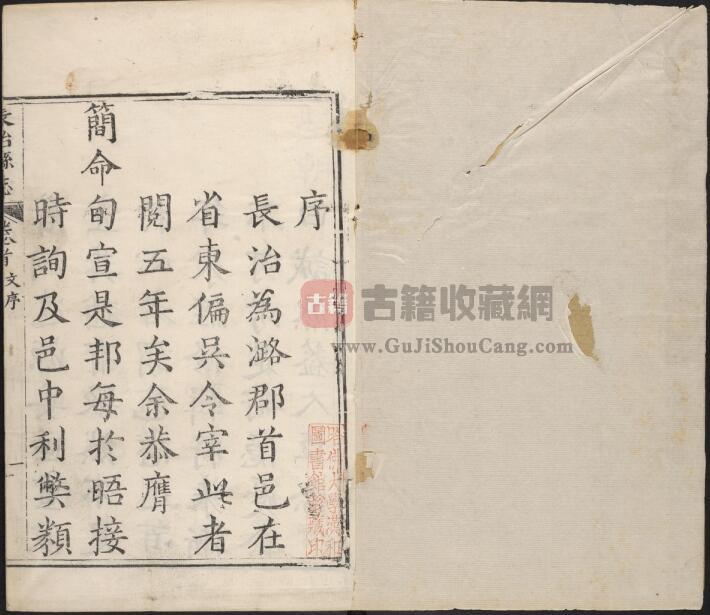 序
長治為潞郡首邑在
省東偏吳令宰此者
閱五年矣余恭膺
簡命旬宣是邦每於晤接
時詢及邑中利獘類
長治縣志
卷首 文序
一
古籍 古籍收藏網
www.GuJiShouCang.com
圖書館藏印